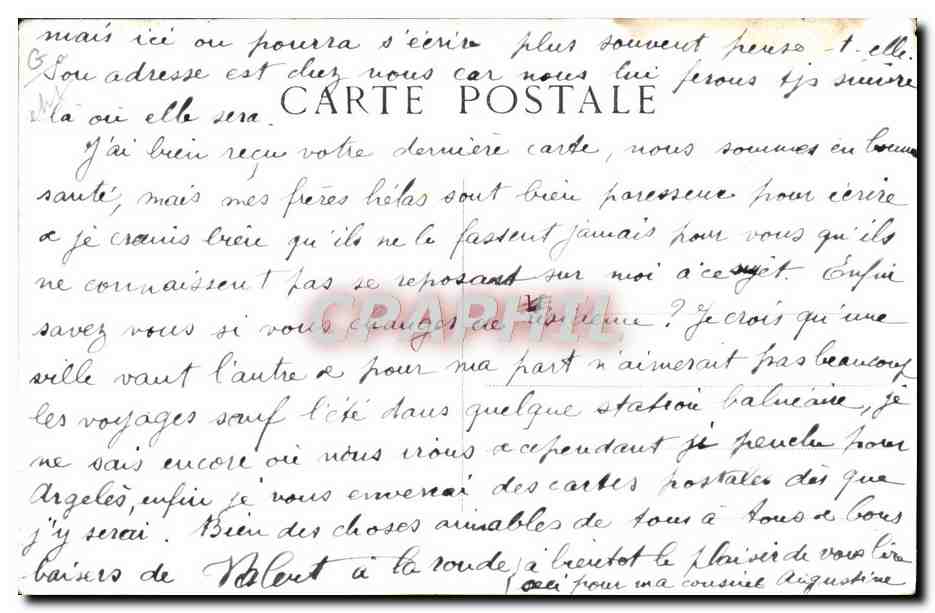 mais ici on pourra s'écrire plus souvent pense-t-elle.
Son adresse est chez nous car nous lui ferons tjs suivre
là où elle sera.
CARTE POSTALE
J'ai bien reçu votre dernière carte, nous sommes en bonne
santé, mais mes frères hélas sont bien paresseux pour écrire
& je crains bien qu'ils ne le fassent jamais pour vous qu'ils
ne connaissent pas se reposant sur moi à ce sujet. Enfin
savez vous si vous changez de résidence ? Je crois qu'une
CPARPHIL
ville vaut l'autre & pour ma part n'aimerait pas beaucoup
les voyages sauf l'été dans quelque station balnéaire, je
ne sais encore où nous irons & cependant je penche pour
Argelès, enfin je vous enverrai des cartes postales dès que
j'y serai. Bien des choses aimables de tous à tous & bons
baisers de Valent à la ronde, à bientôt le plaisir de vous lire
ceci pour ma cousine Augustine